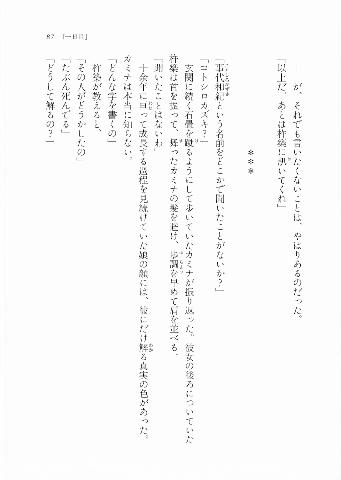 67 【一日目】
が、それでも言いたくないことは、やはりあるのだった。
「以上だ。あとは杵築に訊いてくれ」
＊＊＊
「事代和紀という名前をどこかで聞いたことがないか？」
「コトシロカズキ？」
玄関に続く石畳を蹴るようにして歩いていたカミナが振り返った。彼女の後ろについていた
杵築は首を振って、舞ったカミナの髪を避け、歩調を早めて肩を並べる。
「聞いたことはないわ」
十余年に亘って成長する過程を見続けていた娘の顔には、彼にだけ解る真実の色があった。
カミナは本当に知らない。
「どんな字を書くの」
杵築が教えると、
「その人がどうかしたの」
「たぶん死んでる」
「どうして解るの？」